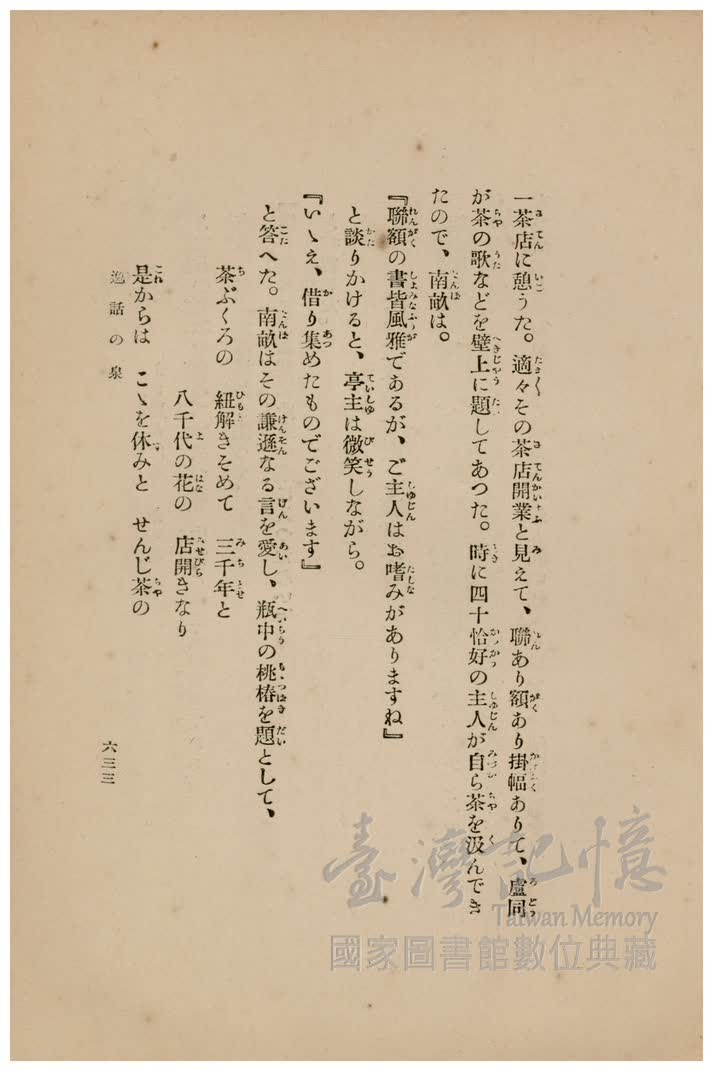 一茶店に憩うた。適々その茶店開業と見えて、聯あり額あり掛幅ありて、盧同
が茶の歌などを壁上に題してあつた。時に四十恰好の主人が自ら茶を汲んでき
たので、南畝は。
『聯額の書皆風雅であるが、ご主人はお嗜みがありますね』
と談りかけると、亭主は微笑しながら。
『いゝえ、借り集めたものでございます』
と答へた。南畝はその謙遜なる言を愛し、瓶中の桃椿を題として、
茶ぶくろの　紐解きそめて　三千年と
八千代の花の　店開きなり
是からは　こゝを休みと　せんじ茶の
逸話の泉
六三三
臺灣記憶
Taiwan Memory
國家圖書館數位典藏